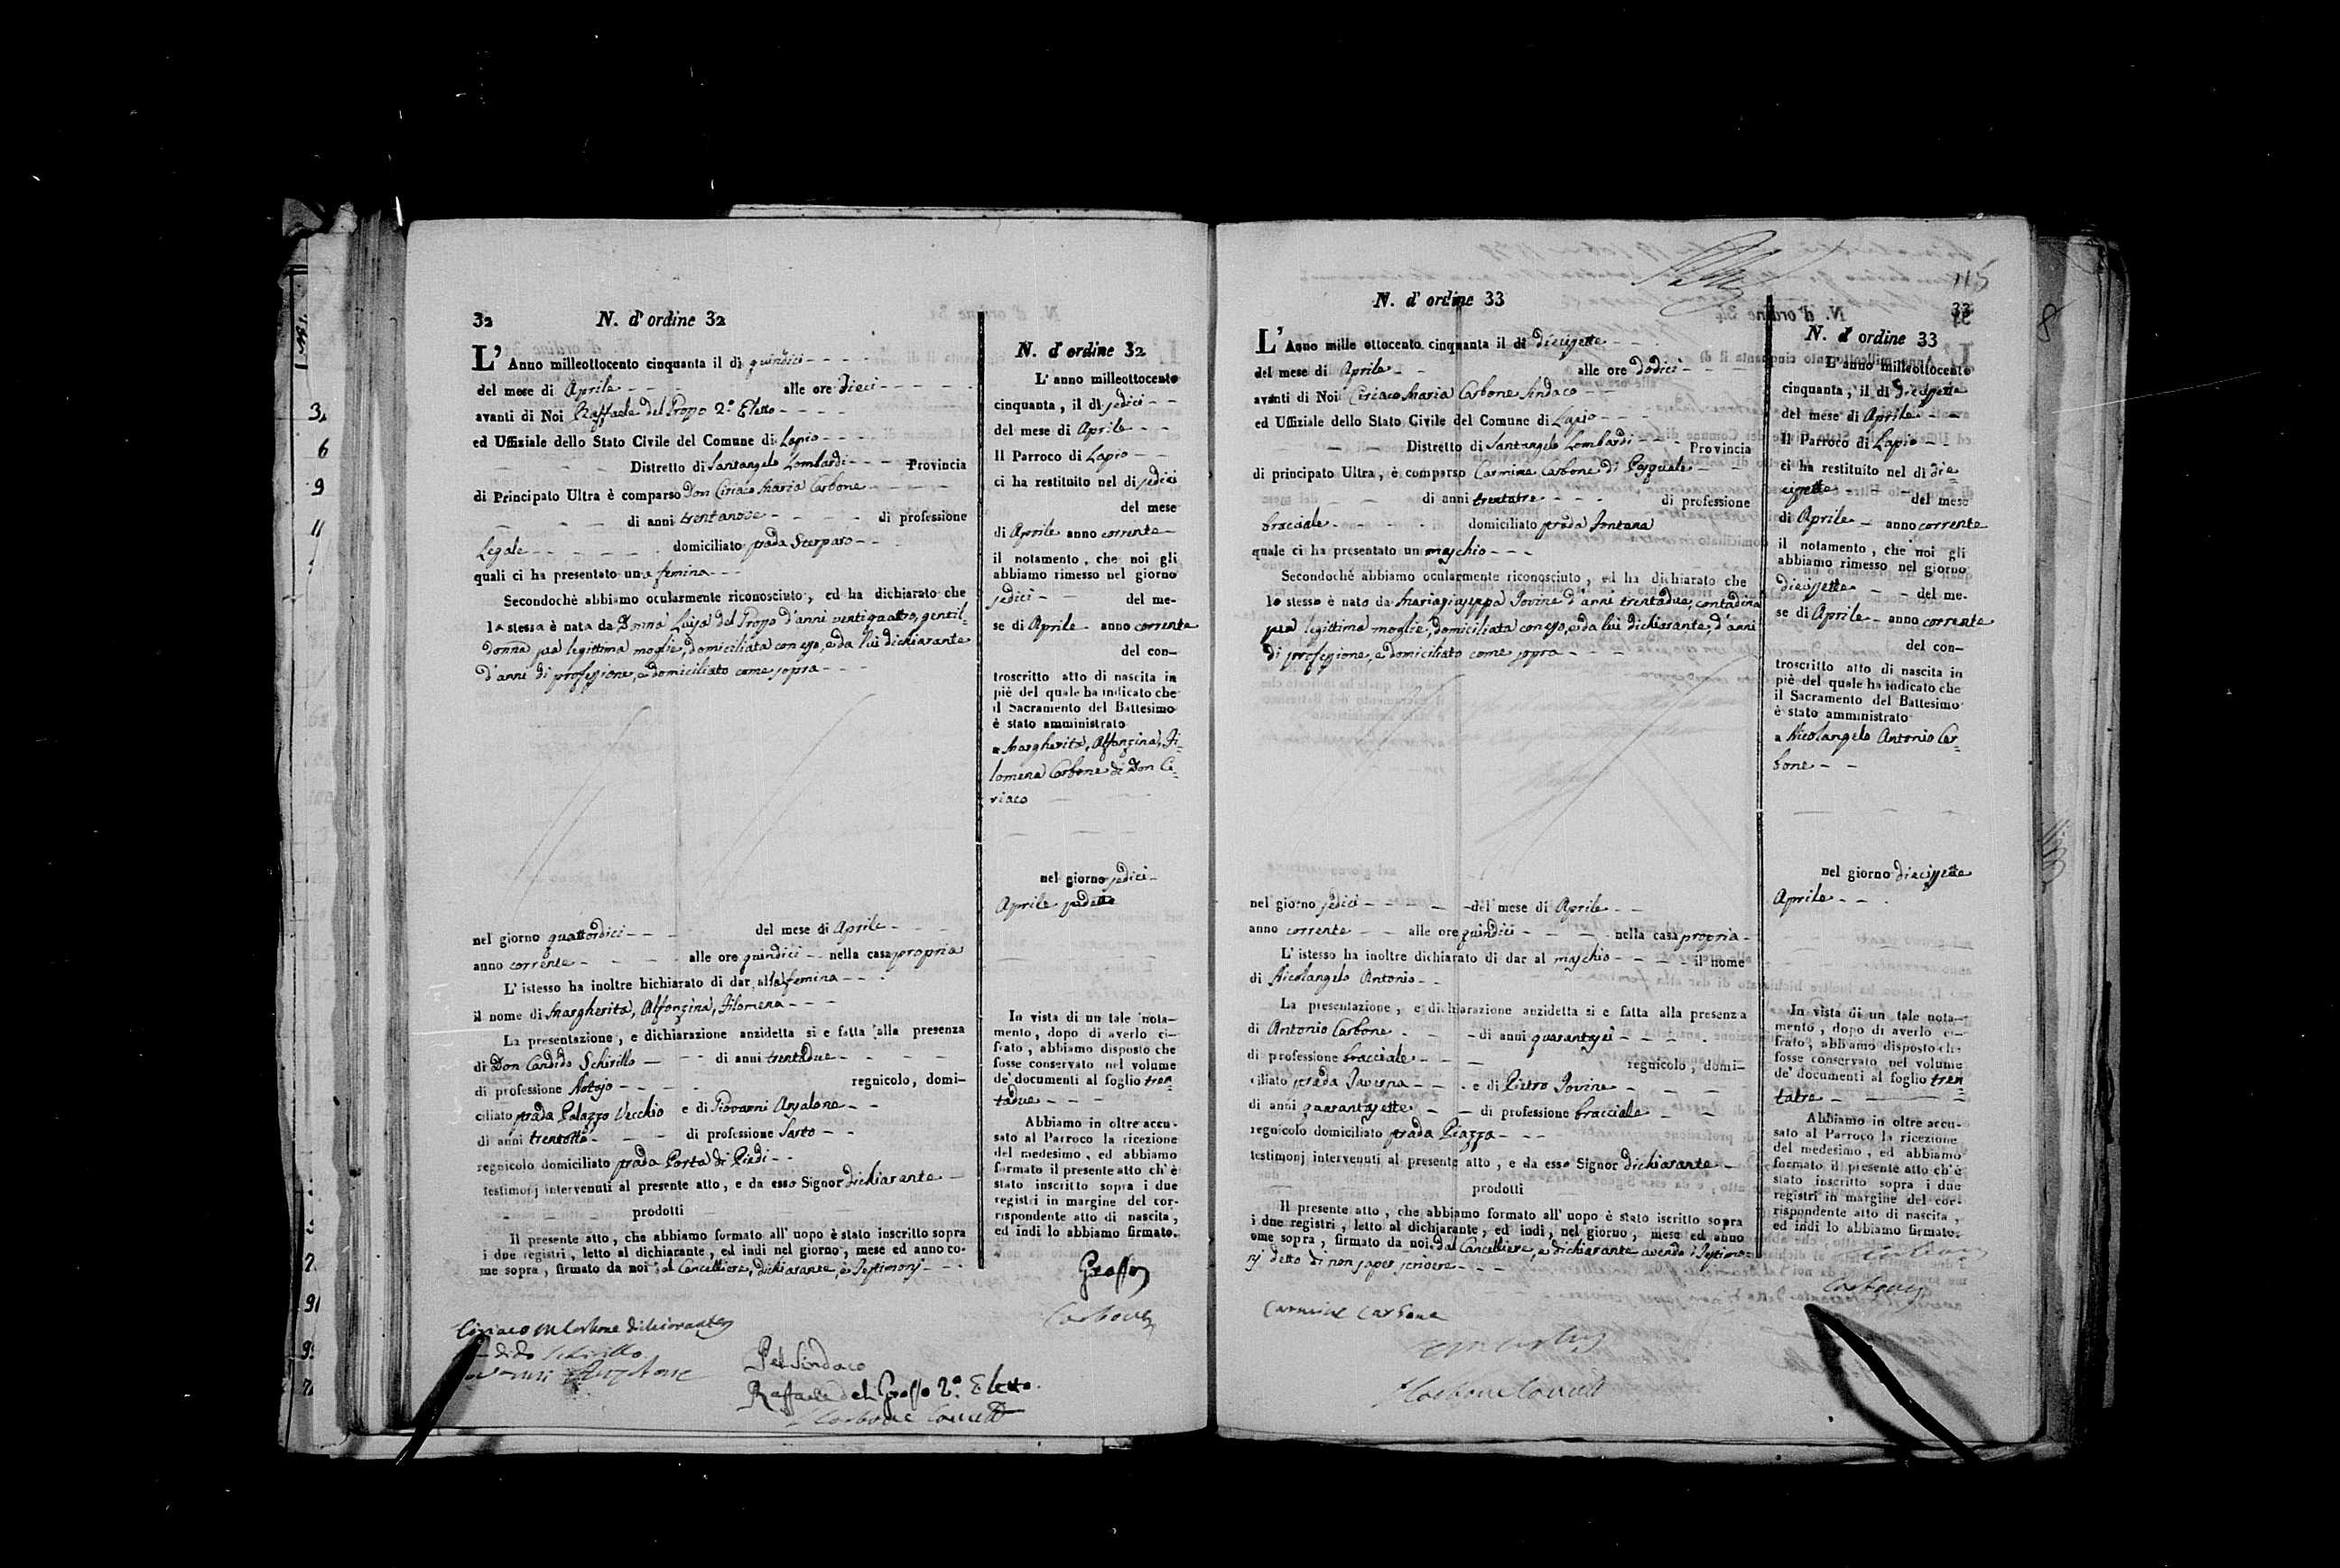 3.
6
9
11
32 N. d'ordine 32
L'Anno milleottocento cinquanta il dì quindici
del mese di Aprile alle ore dieci
avanti di Noi Raffaele del Grosso 2.º Eletto
ed Uffiziale dello Stato Civile del Comune di Lapio
Distretto di Santangelo Lombardi Provincia
di Principato Ultra è comparso Don Ciriaco Maria Carbone
di anni trentanove di professione
Legale domiciliato strada Sterparo
quali ci ha presentato una femina
Secondochè abbiamo ocularmente riconosciuto, ed ha dichiarato che
la stessa è nata da Donna Luisa del Grosso d'anni ventiquattro, gentil=
donna sua legittima moglie, domiciliata con esso, e da lui dichiarante
d'anni di professione, e domiciliato come sopra
nel giorno quattordici del mese di Aprile
anno corrente alle ore quindici nella casa propria
L'istesso ha inoltre hichiarato di dar alla femina
il nome di Margherita, Alfonzina, Filomena
La presentazione, e dichiarazione anzidetta si e fatta alla presenza
di Don Candido Schirillo di anni trentadue
di professione Notajo regnicolo, domi-
ciliato strada Palazzo Vecchio e di Giovanni Anzalone
di anni trentotto di professione Sarto
regnicolo domiciliato strada Porta di Piedi
testimonj intervenuti al presente atto, e da esso Signor dichiarante
prodotti
Il presente atto, che abbiamo formato all'uopo è stato inscritto sopra
i due registri, letto al dichiarante, ed indi nel giorno, mese ed anno co-
me sopra, firmato da noi, dal Cancelliere, dichiarante, e Testimonj
Ciriaco M Carbone dichiarante
Schirillo
Pel Sindaco
Raffaele del Grosso 2.º Eletto
Carbone Cancell
N. d'ordine 32
L'anno milleottocento
cinquanta, il dì sedici
del mese di Aprile
Il Parroco di Lapio
ci ha restituito nel dì sedici
del mese
di Aprile anno corrente
il notamento, che noi gli
abbiamo rimesso nel giorno
sedici del me-
se di Aprile anno corrente
del con-
troscritto atto di nascita in
piè del quale ha indicato che
il Sacramento del Battesimo
è stato amministrato
a Margherita, Alfonzina, Fi=
lomena Carbone di Don Ci=
riaco
nel giorno sedici
Aprile sudetto
In vista di un tale nota-
mento, dopo di averlo ci-
frato, abbiamo disposto che
fosse conservato nel volume
de' documenti al foglio tren
tadue
Abbiamo in oltre accu-
sato al Parroco la ricezione
del medesimo, ed abbiamo
formato il presente atto ch'è
stato inscritto sopra i due
registri in margine del cor-
rispondente atto di nascita,
ed indi lo abbiamo firmato.
Grosso
Carbone
115
N. d'ordine 33
L'Anno mille ottocento cinquanta il dì diecisette
del mese di Aprile alle ore dodici
avanti di Noi Ciriaco Maria Carbone Sindaco
ed Uffiziale dello Stato Civile del Comune di Lapio
Distretto di Santangelo Lombardi Provincia
di principato Ultra, è comparso Carmine Carbone di Pasquale
di anni trentatre di professione
bracciale domiciliato strada Fontana
quale ci ha presentato un maschio
Secondochè abbiamo ocularmente riconosciuto, ed ha dichiarato che
lo stesso è nato da Mariagiuseppa Iovine d'anni trentadue, contadina
sua legittima moglie, domiciliata con esso, e da lui dichiarante, d'anni
di professione, e domiciliato come sopra
nel giorno sedici del mese di Aprile
anno corrente alle ore quindici nella casa propria
L'istesso ha inoltre dichiarato di dar al maschio il nome
di Nicolangelo Antonio
La presentazione, e dichiarazione anzidetta si e fatta alla presenza
di Antonio Carbone di anni quarantasei
di professione bracciale regnicolo, domi-
ciliato strada Taverna e di Pietro Iovine
di anni quarantasette di professione bracciale
regnicolo domiciliato strada Piazza
testimonj intervenuti al presente atto, e da esso Signor dichiarante
prodotti
Il presente atto, che abbiamo formato all'uopo è stato iscritto sopra
i due registri, letto al dichiarante, ed indi, nel giorno, mese ed anno
ome sopra, firmato da noi, dal Cancelliere, e dichiarante avendo i Testimo=
nj detto di non saper scrivere
Carmine Carbone
Carbone Cancell
33
N. d'ordine 33
L'anno milleottocento
cinquanta, il dì diecisette
del mese di Aprile
Il Parroco di Lapio
ci ha restituito nel dì die=
cisette del mese
di Aprile anno corrente
il notamento, che noi gli
abbiamo rimesso nel giorno
diecisette del me-
se di Aprile anno corrente
del con-
troscritto atto di nascita in
piè del quale ha indicato che
il Sacramento del Battesimo
è stato amministrato
a Nicolangelo Antonio Car=
bone
nel giorno diecisette
Aprile
In vista di un tale nota-
mento, dopo di averlo ci-
frato, abbiamo disposto che
fosse conservato nel volume
de' documenti al foglio tren
tatre
Abbiamo in oltre accu-
sato al Parroco la ricezione
del medesimo, ed abbiamo
formato il presente atto ch'è
stato inscritto sopra i due
registri in margine del cor-
rispondente atto di nascita,
ed indi lo abbiamo firmato.
Carbone
8